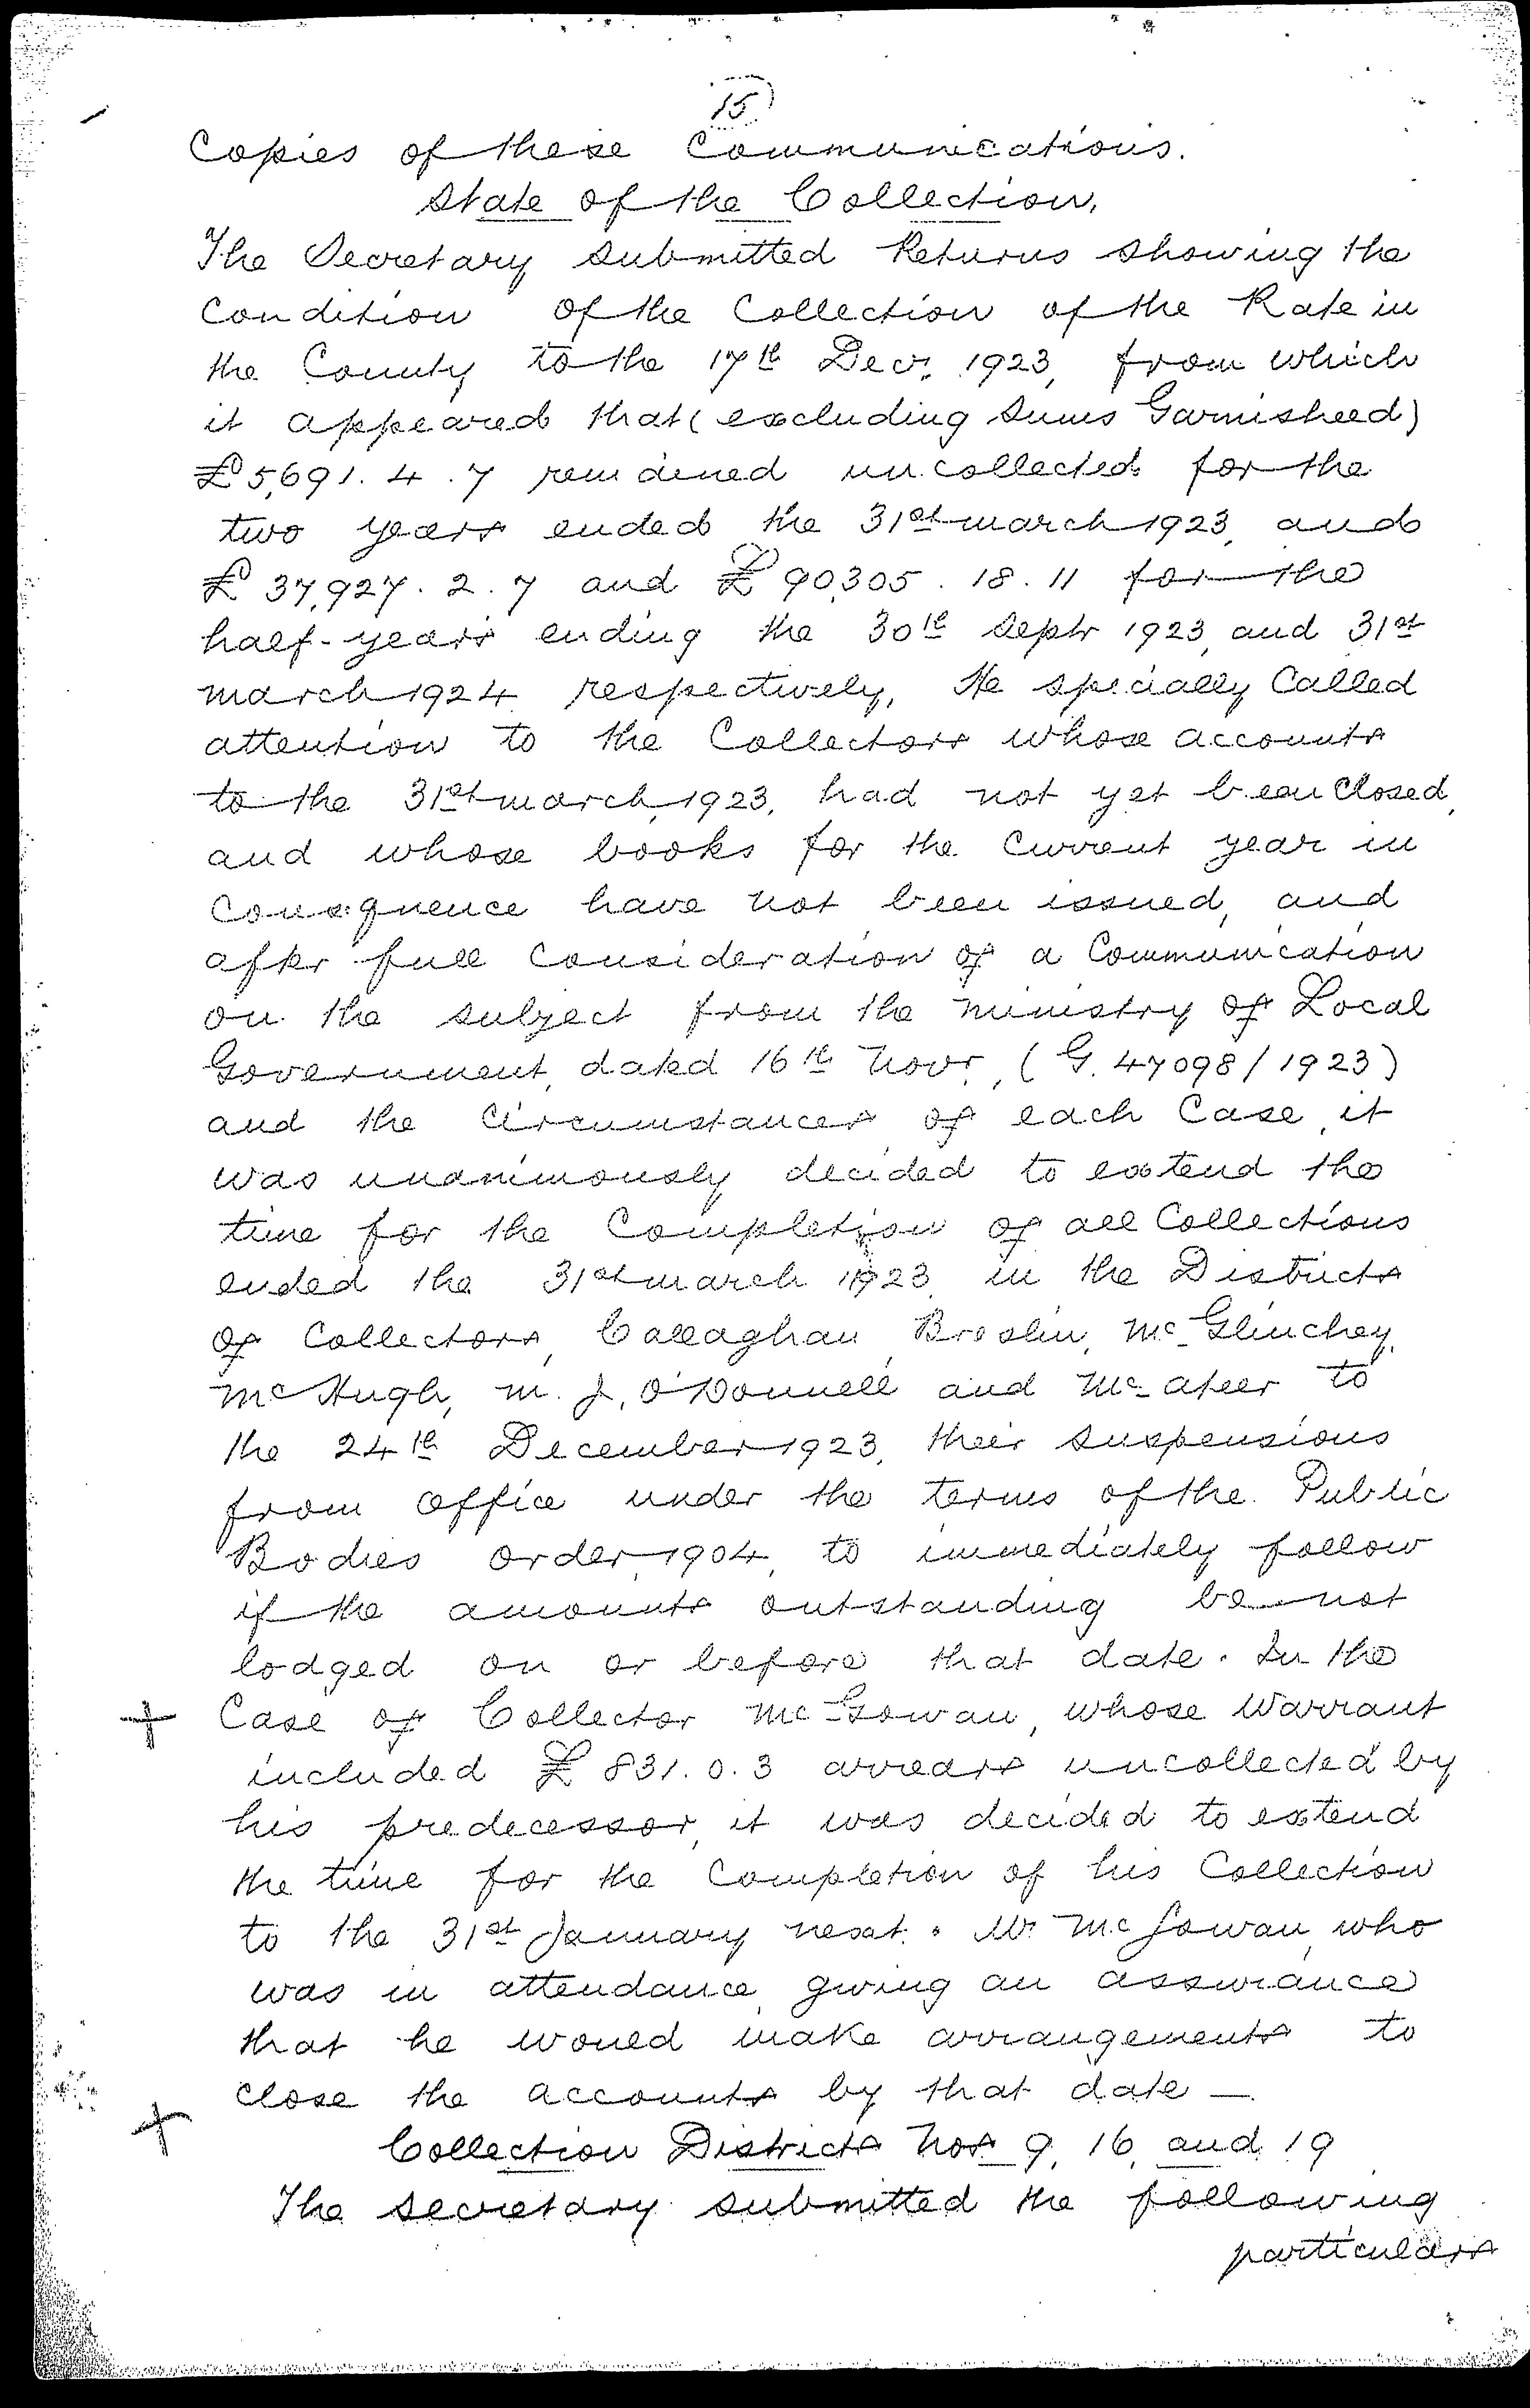 15
Copies of these Communications.
State of the Collection,
The Secretary submitted Returns showing the
Condition of the Collection of the Rate in
the County to the 17th Decr. 1923, from which
it appeared that (excluding sums Garnisheed)
£5,691. 4. 7 remained uncollected for the
two years ended the 31st march 1923, and
£37,927. 2. 7 and £90,305. 18. 11 for the
half-years ending the 30th Septr 1923, and 31st
march 1924 respectively, He specially Called
attention to the Collectors whose accounts
to the 31st march, 1923, had not yet been Closed,
and whose books for the Current year in
Consequence have not been issued, and
after full Consideration of a Communication
on the subject from the ministry of Local
Government, dated 16th Novr., (G. 47098/1923)
and the Circumstances of each Case, it
was unanimously decided to extend the
time for the Completion of all Collections
ended the 31st march 1923 in the Districts
of Collectors, Callaghan, Breslin, McGlinchey,
McHugh, M. J. O'Donnell and McAteer to
the 24th December 1923, their suspensions
from Office under the terms of the Public
Bodies Order, 1904, to immediately follow
if the amounts outstanding be not
lodged on or before that date. In the
+ Case of Collector McGowan, whose Warrant
included £831. 0. 3 arrears uncollected by
his predecessor, it was decided to extend
the time for the Completion of his Collection
to the 31st January next. Mr McGowan, who
was in attendance, giving an assurance
that he would make arrangements to
close the accounts by that date —
+ Collection Districts Nos 9, 16, and 19
The Secretary submitted the following
particulars